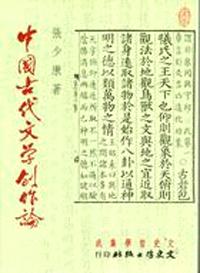 張少康著
中國古代文学創作論
古者庖
犧氏之王天下也仰則觀象於天俯則
觀法於地觀鳥獸之文與地之宜近取
諸身遠取諸物於是始作八卦以通神
明之德以類萬物之情
文史哲學集成
文史哲出版社印行